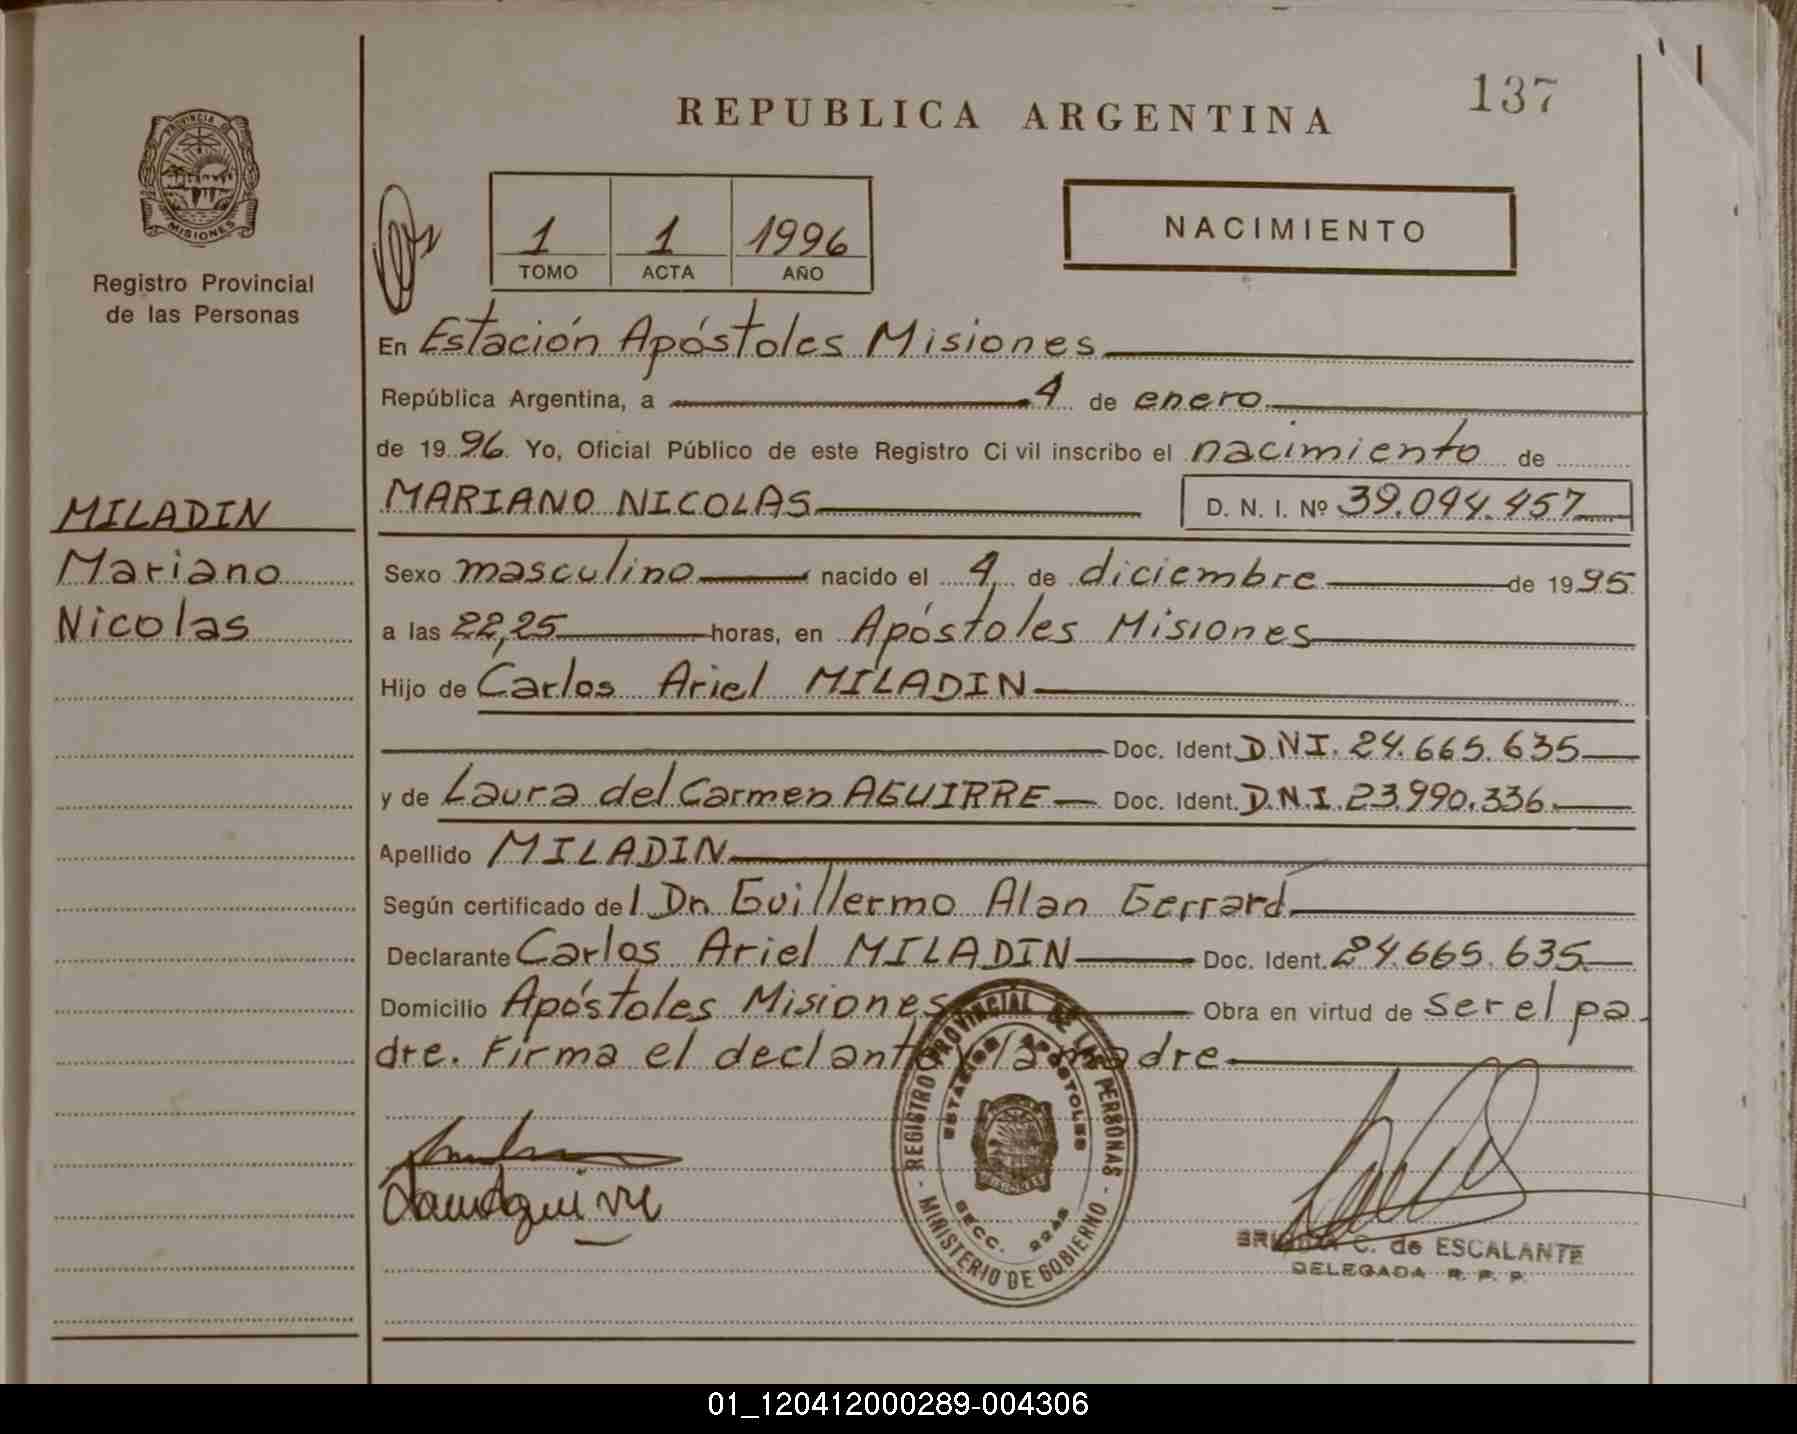 137
REPUBLICA ARGENTINA
PROVINCIA DE
MISIONES
Registro Provincial
de las Personas
1 1 1996
TOMO ACTA AÑO
NACIMIENTO
En Estación Apóstoles Misiones
República Argentina, a 4 de enero
de 1996. Yo, Oficial Público de este Registro Civil inscribo el nacimiento de
MARIANO NICOLAS D. N. I. Nº 39.094.457
MILADIN
Mariano
Nicolas
Sexo masculino nacido el 4 de diciembre de 1995
a las 22,25 horas, en Apóstoles Misiones
Hijo de Carlos Ariel MILADIN
Doc. Ident. D.N.I. 24.665.635
y de Laura del Carmen AGUIRRE Doc. Ident. D.N.I. 23.990.336.
Apellido MILADIN
Según certificado del Dn Guillermo Alan Gerrard
Declarante Carlos Ariel MILADIN Doc. Ident. 24.665.635
Domicilio Apóstoles Misiones Obra en virtud de ser el pa
dre. Firma el declante y la madre
REGISTRO PROVINCIAL DE LAS PERSONAS
ESTACION APOSTOLES
MISIONES
SECC. 2245
- MINISTERIO DE GOBIERNO -
C. de ESCALANTE
DELEGADA R. P. P.
01_120412000289-004306